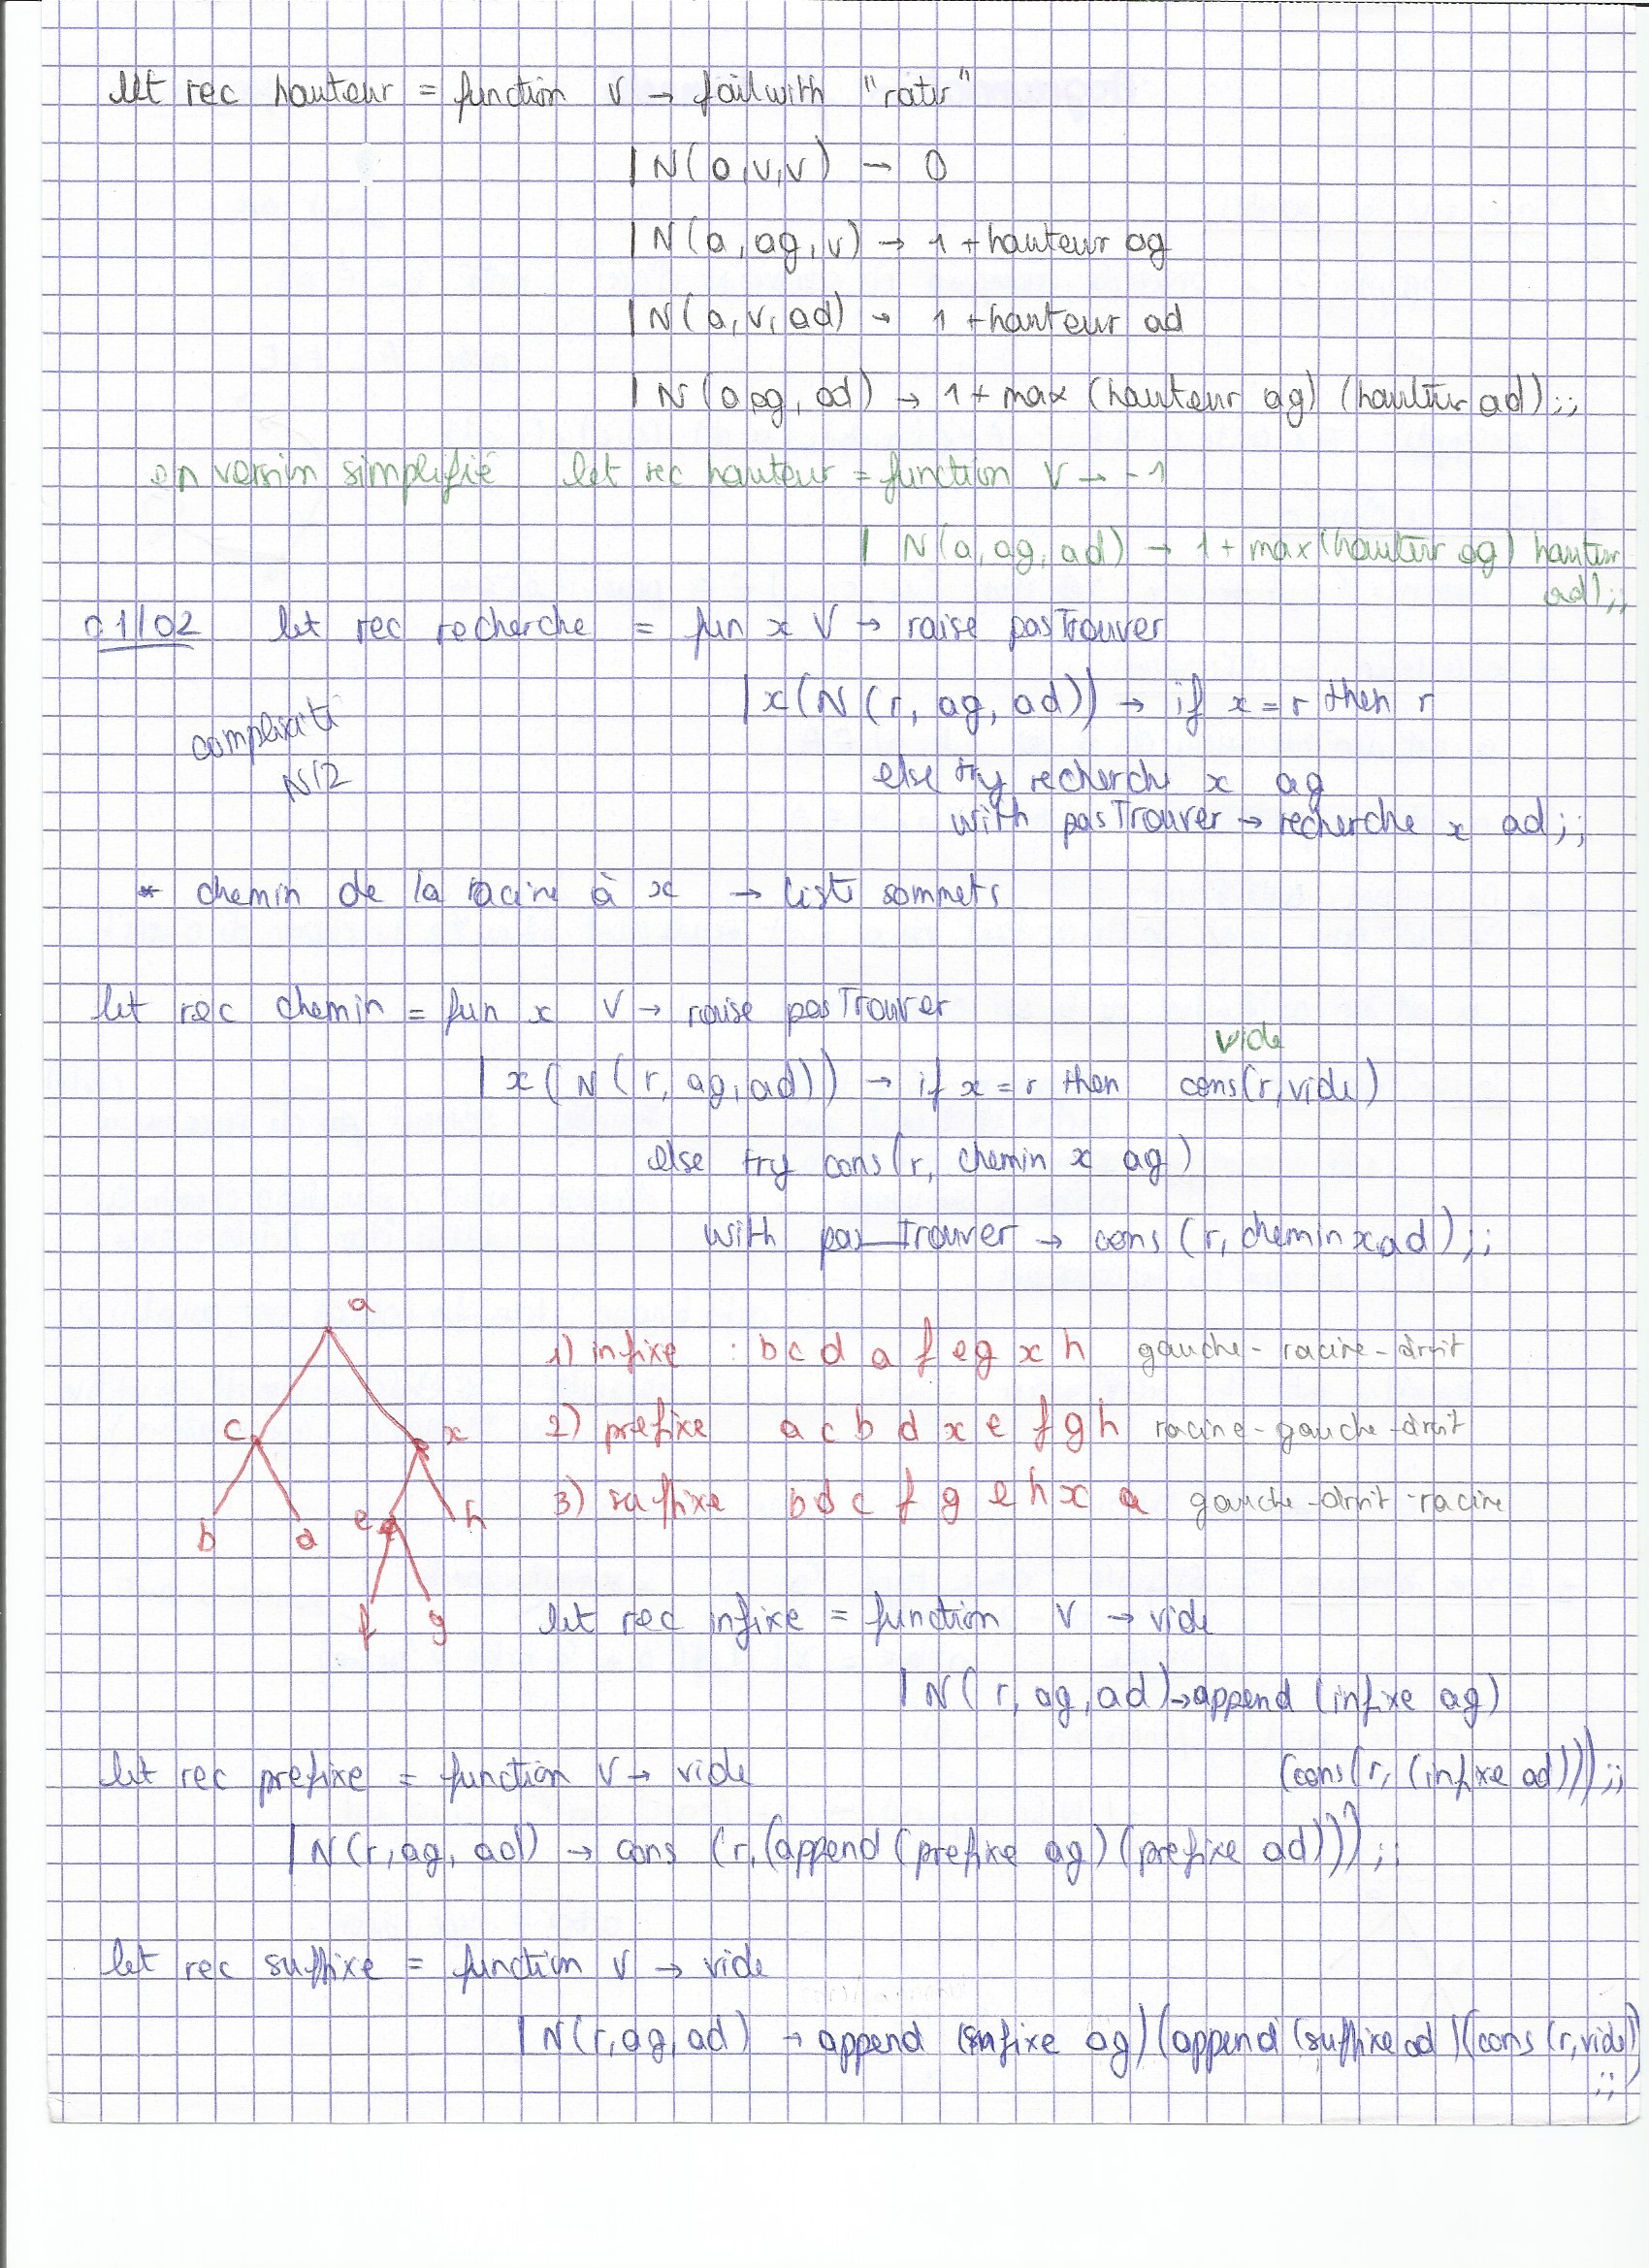 let rec hauteur = function V → failwith "rater"
| N(a,V,V) → 0
| N(a, ag, V) → 1 + hauteur ag
| N(a, V, ad) → 1 + hauteur ad
| N(a, ag, ad) → 1 + max (hauteur ag) (hauteur ad);;
en version simplifié let rec hauteur = function V → -1
| N(a, ag, ad) → 1 + max (hauteur ag) hauteur
ad);;
01/02 let rec recherche = fun x V → raise pasTrouver
| x (N(r, ag, ad)) → if x = r then r
complexité
N/2
else try recherche x ag
with pasTrouver → recherche x ad;;
* chemin de la racine à x → liste sommets
let rec chemin = fun x V → raise pasTrouver
vide
| x (N(r, ag, ad)) → if x = r then cons(r, vide)
else try cons(r, chemin x ag)
with pas_trouver → cons (r, chemin x ad);;
a
1) infixe : b c d a f e g x h gauche - racine - droit
c x
2) prefixe a c b d x e f g h racine - gauche - droit
3) suffixe b d c f g e h x a gauche - droit - racine
b d e h
f g
let rec infixe = function V → vide
| N(r, ag, ad) → append (infixe ag)
(cons(r, (infixe ad)));;
let rec prefixe = function V → vide
| N(r, ag, ad) → cons (r, (append (prefixe ag) (prefixe ad)));;
let rec suffixe = function V → vide
| N(r, ag, ad) → append (suffixe ag) (append (suffixe ad) (cons (r, vide)
;;